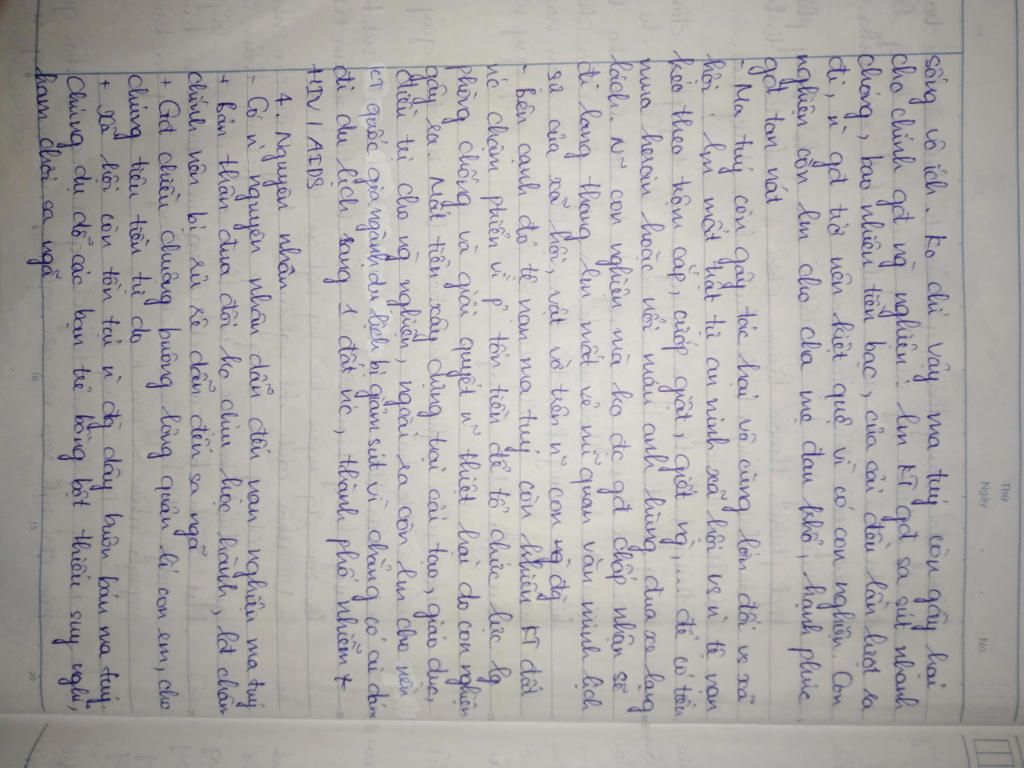 Thứ
Ngày
No.
sống vô ích. Ko chỉ vậy ma tuý còn gây hại
cho chính gđ ng nghiện: lm KT gđ sa sút nhanh
chóng, bao nhiêu tiền bạc, của cải đều lần lượt ra
đi, n gđ trở nên kiệt quệ vì có con nghiện. Con
nghiện còn lm cho cha mẹ đau khổ, hạnh phúc
gđ tan nát
- Ma tuý còn gây tác hại vô cùng lớn đối vs xã
hội: lm mất trật tự an ninh xã hội vs n tệ nạn
kéo theo trộm cắp, cướp giật, giết ng,... để có tiền
mua heroin hoặc nổi máu anh hùng đua xe lạng
lách. N con nghiện mà ko đc gđ chấp nhận sẽ
đi lang thang lm mất vẻ mĩ quan văn minh lịch
sự của xã hội, vật vờ trên n con ng đg
- Bên cạnh đó tệ nạn ma tuý còn khiến KT đất
nc chậm phát triển vì p tốn tiền để tổ chức lực lg
phòng chống và giải quyết n thiệt hại do con nghiện
gây ra. Mất tiền xây dựng trại cải tạo, giáo dục,
điều trị cho ng nghiện, ngoài ra còn lm cho nền
KT quốc gia, ngành du lịch bị giảm sút vì chẳng có ai dám
đi du lịch sang 1 đất nc, thành phố nhiễm
HIV/AIDS
4. Nguyên nhân
- Có n nguyên nhân dẫn đến nạn nghiện ma tuý
+ Bản thân đua đòi, ko chịu học hành, lơi chân
chính nên bị rủ rê dẫn đến sa ngã
+ Gđ chiều chuộng buông lỏng quản lí con em, cho
chúng tiêu tiền tự do
+ Xã hội còn tồn tại n đg dây buôn bán ma tuý.
Chúng dụ dỗ các bạn trẻ bồng bột thiếu suy nghĩ,
ham chơi sa ngã